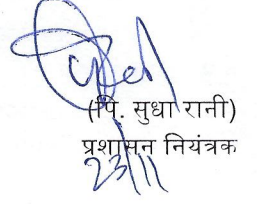 (पि. सुधा रानी)
प्रशासन नियंत्रक
23/11